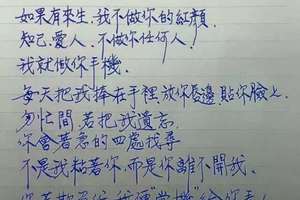 如果有來生，我不做你的紅顏
知己、愛人，不做你任何人，
我就做你手機。
每天把我捧在手裡放你唇邊貼你臉上
匆忙間，若把我遺忘，
你會著急的四處找尋
不是我粘著你，而是你離不開我。